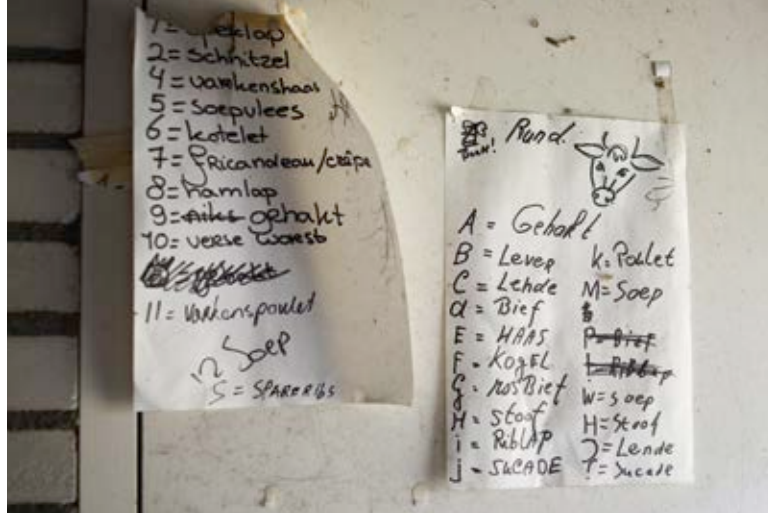 1= speklap
2= schnitzel
4= varkenshaas
5= soepvlees
6= kotelet
7= fricandeau/crêpe
8= hamlap
9= gehakt
10= verse worst
11= varkenspoulet
12 Soep
S = SPARERIBS
Rund.
A = Gehakt
B = Lever
C = Lende
d = Bief
E = HAAS
F = KOGEL
G = rosBief
H = stoof
i = RiblAP
j - SUCADE
K= Poulet
M= Soep
P=Bief
W= soep
H= Stoof
?= Lende
?= Sucade